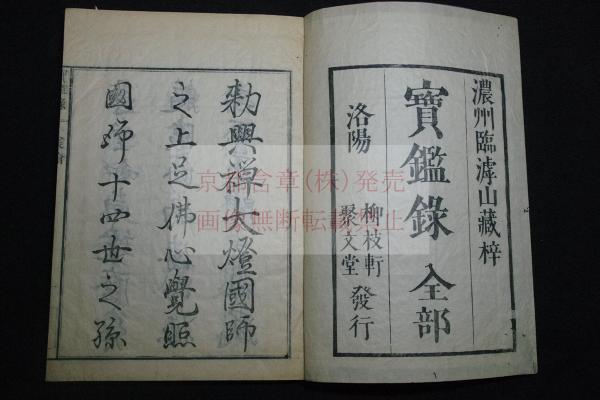 濃州臨濵山藏梓
寶鑑錄 全部
洛陽 柳枝軒 聚文堂 發行
勅興禅大燈國師
之上足佛心覺照
國師十四世之孫
京都含章(株)発売
画像無断転載禁止